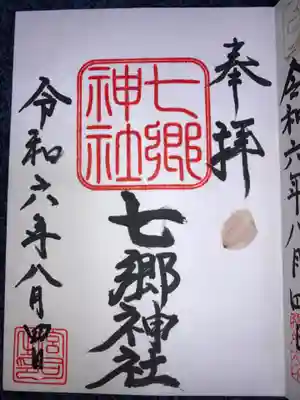 奉拝
七郷
神社
七郷神社
令和六年八月四日
令和六年八月四